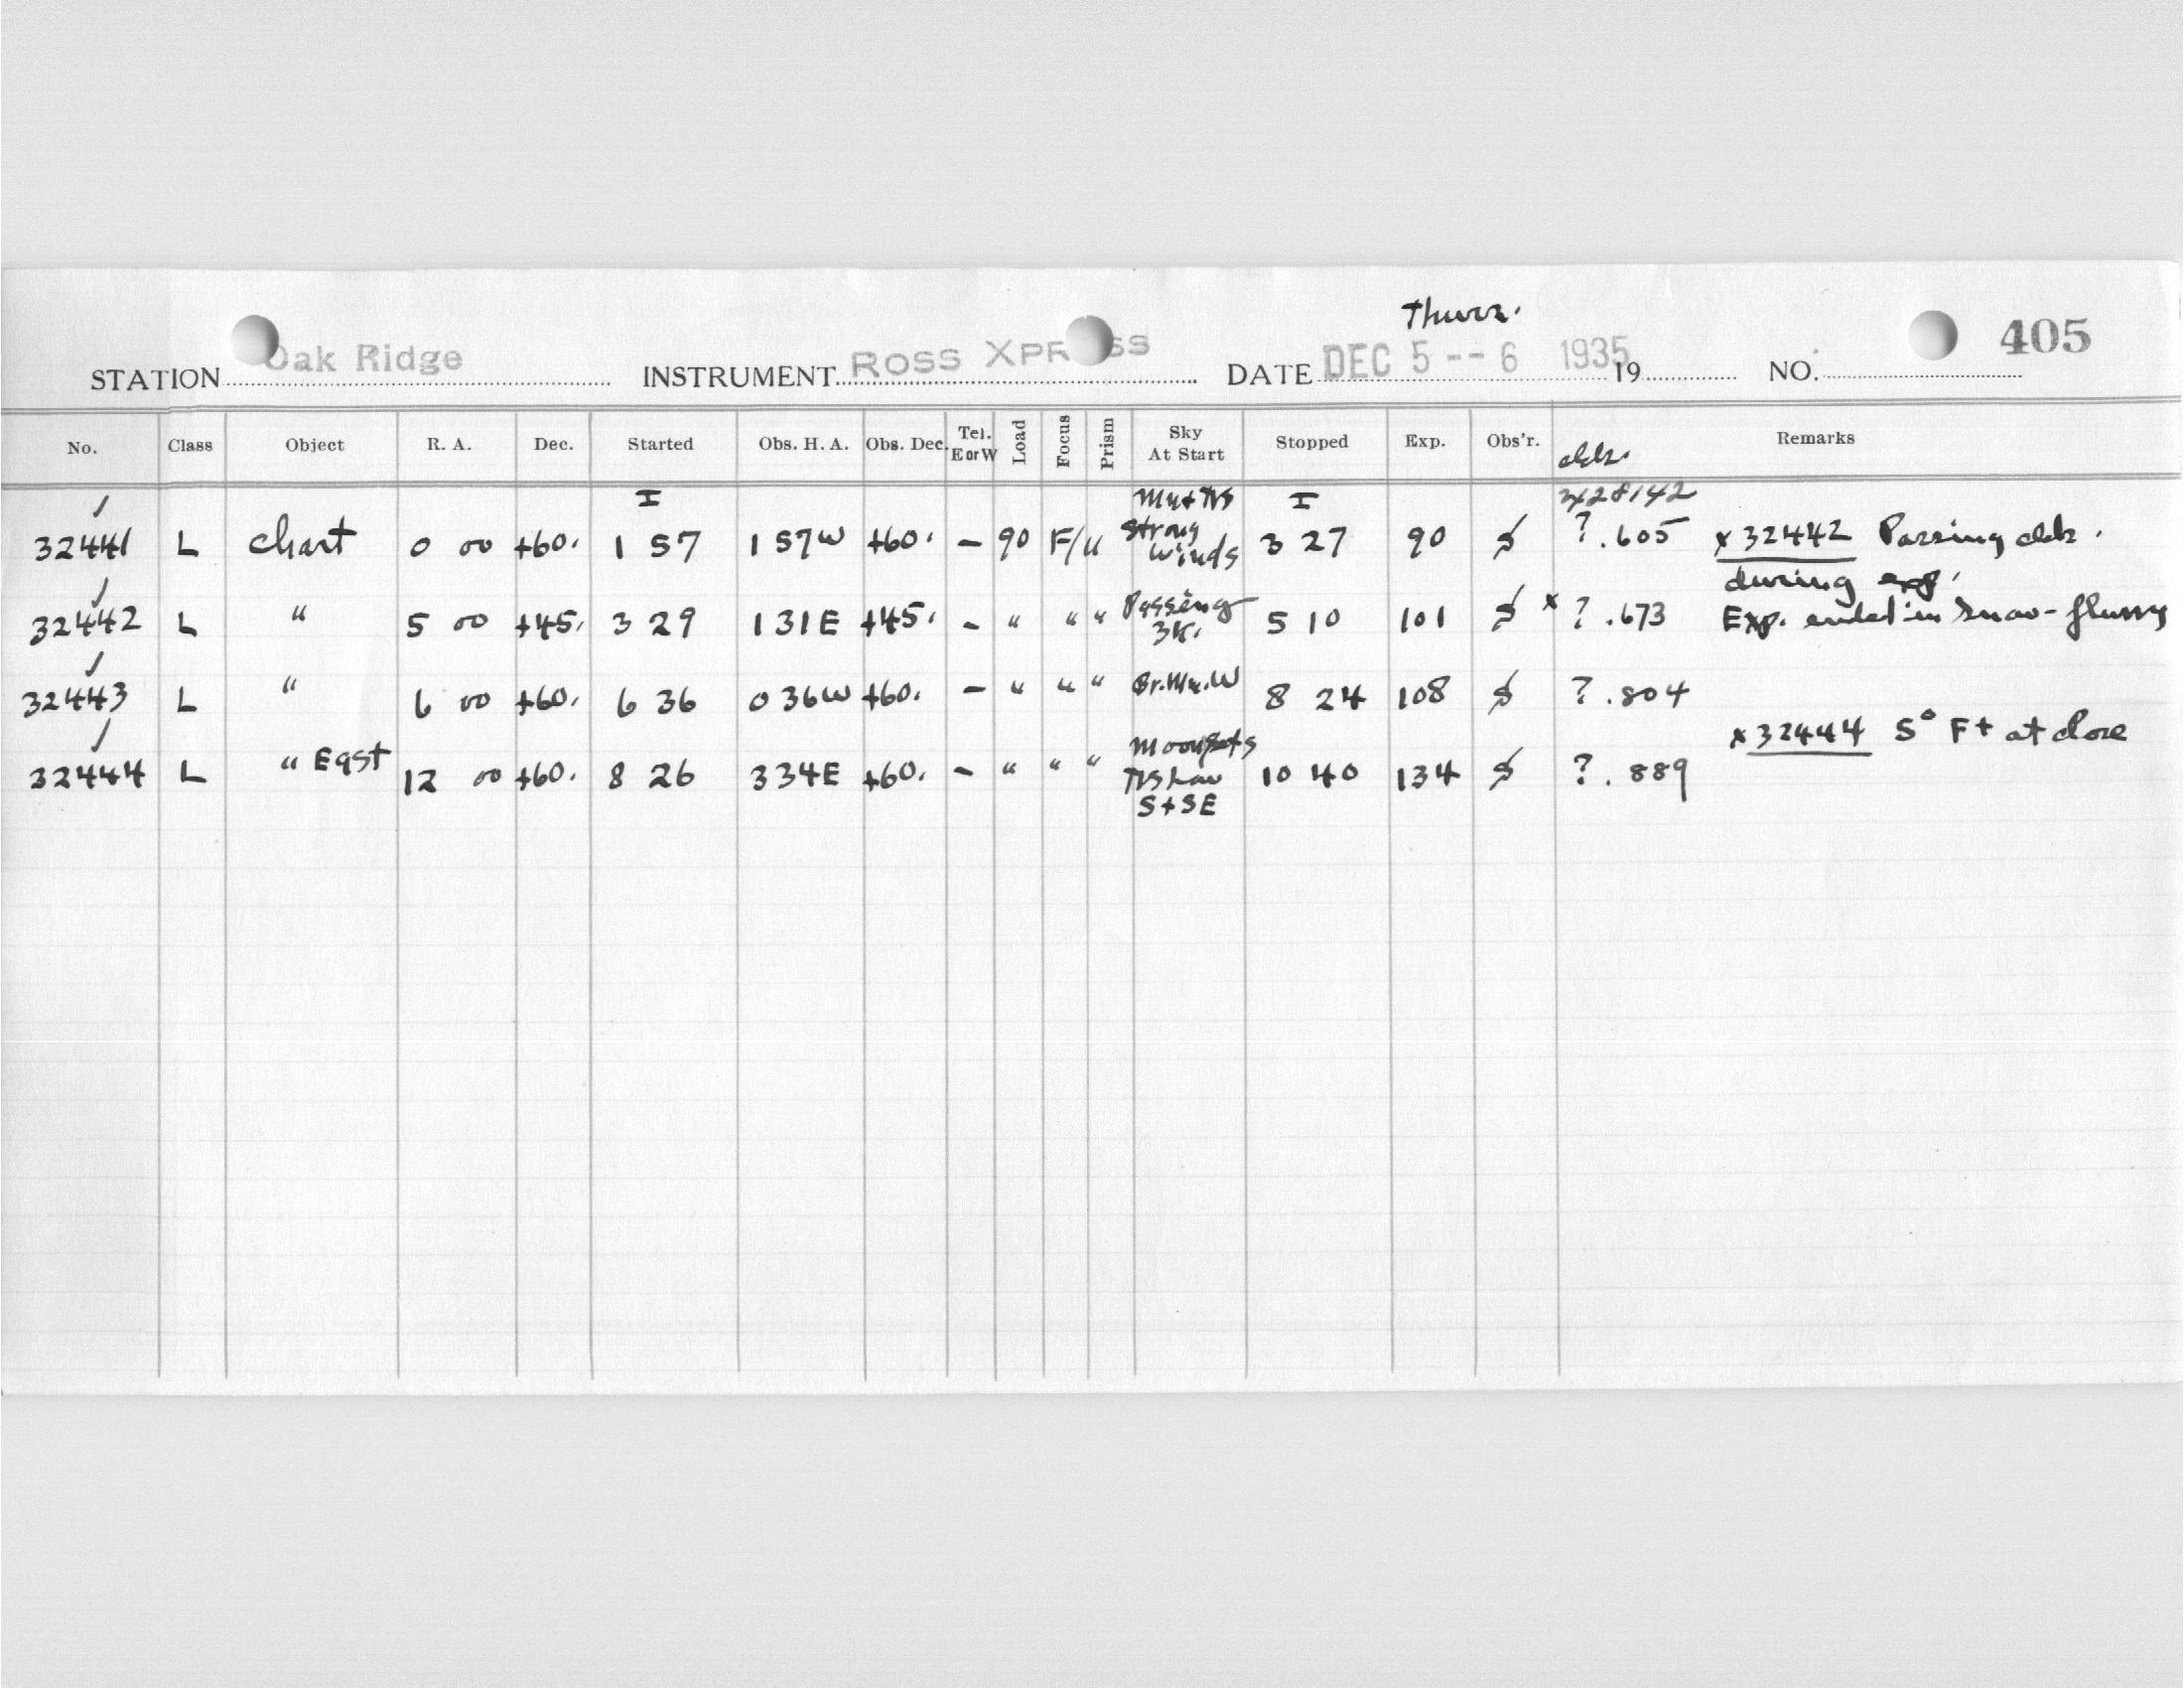 Thurs.
STATION Oak Ridge INSTRUMENT ROSS XPR SS DATE DEC 5 -- 6 1935 19 NO. 405
No. Class Object R. A. Dec. Started Obs. H. A. Obs. Dec. Tel. E or W Load Focus Prism Sky At Start Stopped Exp. Obs'r. Remarks
32441 L Chart 0 00 +60. I 1 57 1 57 W +60. - 90 F/u Strong Winds I 3 27 90 ? .605 x 32442 Passing clds.
during exp.
32442 L " 5 00 +45. 3 29 1 31 E +45. - " " " Passing 5 10 101 x ? .673 Exp. ended in snow-flurry
32443 L " 6 00 +60. 6 36 0 36 W +60. - " " " Br. Mn. W 8 24 108 ? .804
x 32444 5° F+ at close
32444 L " East 12 00 +60. 8 26 3 34 E +60. - " " " Moon sets low S + SE 10 40 134 ? .889